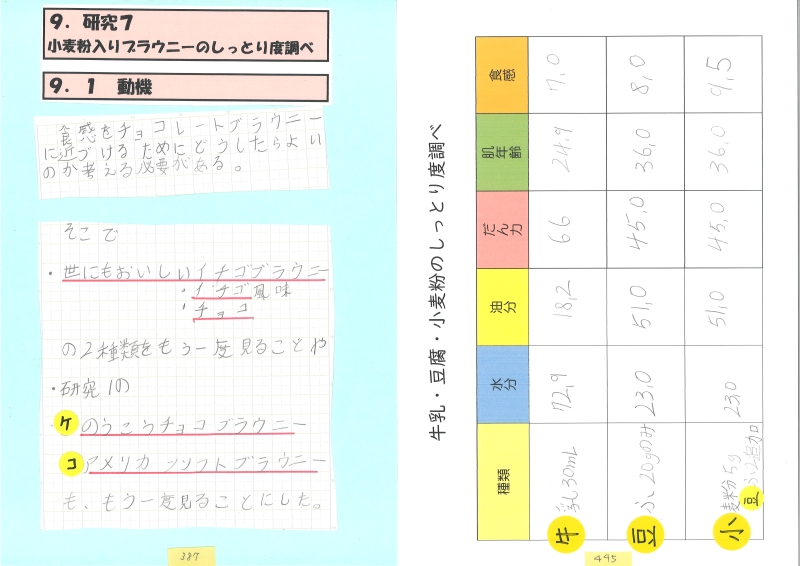 9. 研究7
小麦粉入りブラウニーのしっとり度調べ
9. 1 動機
食感をチョコレートブラウニー
に近づけるためにどうしたらよい
のか考える必要がある。
そこで
・世にもおいしいイチゴブラウニー
・イチゴ風味
・チョコ
の2種類をもう一度見ることや
・研究1の
ケ のうこうチョコブラウニー
コ アメリカンソフトブラウニー
も、もう一度見ることにした。
387
牛乳・豆腐・小麦粉のしっとり度調べ
種類 水分 油分 だん力 肌年齢 食感
牛乳30mL 72,9 18,2 66 24,9 7,0
豆ふ20gのみ 23,0 51,0 45,0 36,0 8,0
小麦粉5g 豆ふに追加 23,0 51,0 45,0 36,0 9,5
495